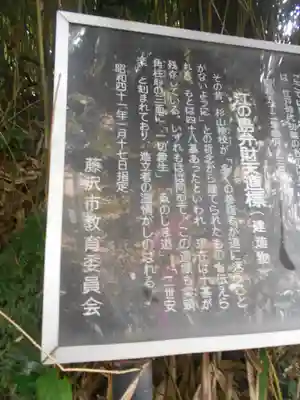 江の島弁財天道標（建造物）
その昔、杉山検校が、多くの参詣者が道に迷うこと
がないように、との祈念から建てられたものと伝えら
れる。もとは四十八基あったといわれ、現在は十
残存している。いずれもほぼ同型で、この道標も
角柱形の三面に、「一切衆生」「ゑのしま道」「二世安
楽」と刻まれており、造文者の温情がしのばれる。
昭和四十二年二月十七日指定
藤沢市教育委員会